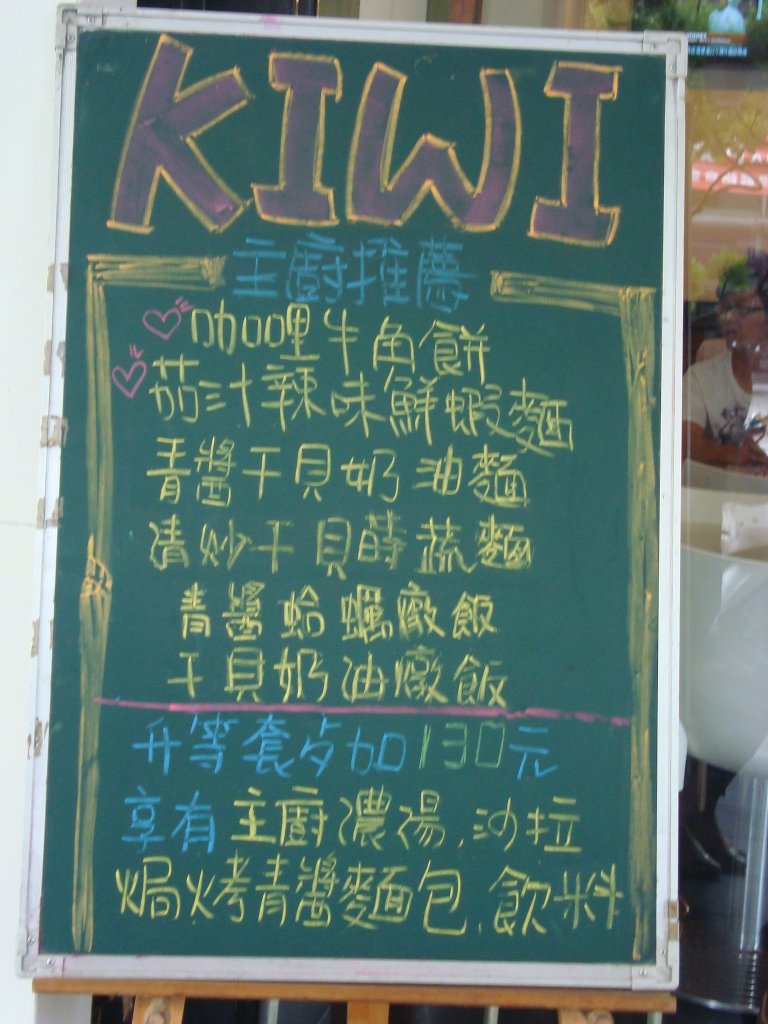 KIWI
主廚推薦
咖哩牛角餅
茄汁辣味鮮蝦麵
青醬干貝奶油麵
清炒干貝時蔬麵
青醬蛤蠣燉飯
干貝奶油燉飯
升等套歺加130元
享有主廚濃湯、沙拉
焗烤青醬麵包、飲料